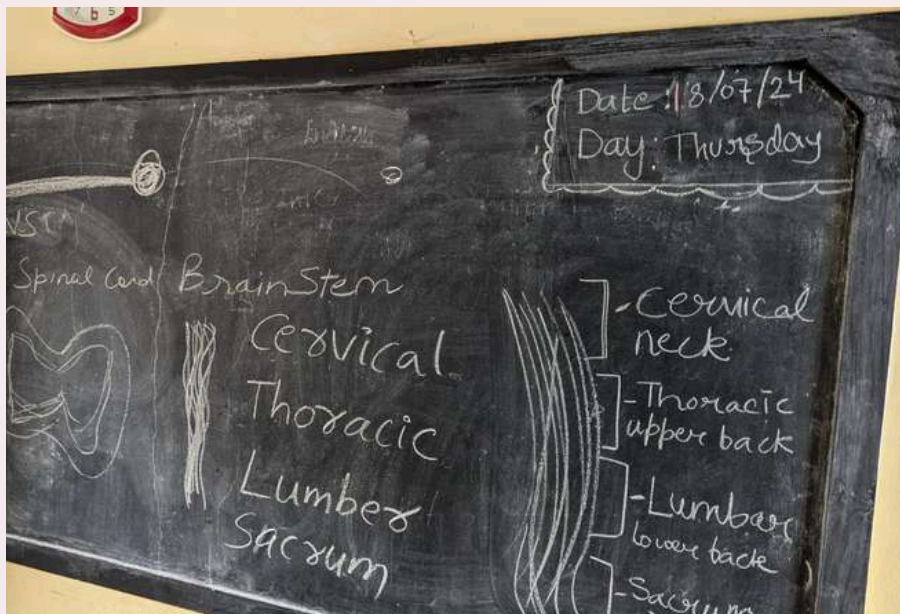 7 6 5
Date: 18/07/24
Day: Thursday
Spinal Cord
Brain Stem
Cervical
Thoracic
Lumber
Sacrum
- Cervical
neck
- Thoracic
upper back
- Lumbar
lower back
- Sacrum